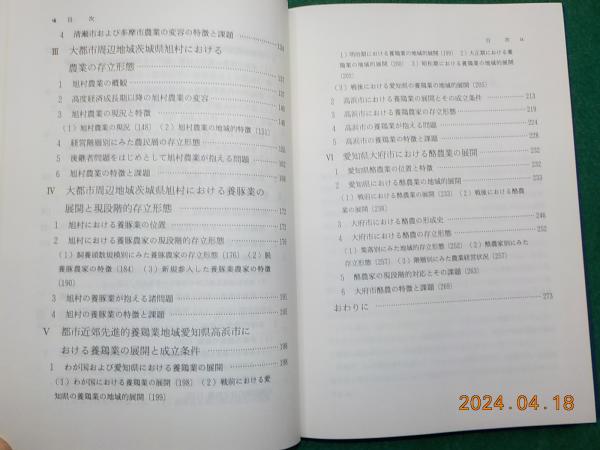 目次
4 清瀬市および多摩市農業の変容の特徴と課題
III 大都市周辺地域茨城県旭村における
農業の存立形態 137
1 旭村農業の概観 137
2 高度経済成長期以降の旭村農業の変容 140
3 旭村農業の現況と特徴 148
(1)旭村農業の現況(148) (2)旭村農業の地域的特徴(151)
4 経営階層別にみた農民層の存立形態
5 後継者問題をはじめとして旭村農業が抱える問題
6 旭村農業の特徴と課題 168
IV 大都市周辺地域茨城県旭村における養豚業の
展開と現段階的存立形態 172
1 旭村における養豚業の位置 172
2 旭村における養豚農家の現段階的存立形態 176
(1)飼養頭数規模別にみた養豚農家の存立形態(176) (2)脱
養豚農家の特徴(184) (3)新規参入した養豚業農家の特徴
(190)
3 旭村の養豚業が抱える諸問題 191
4 旭村の養豚業の特徴と課題 194
V 都市近郊先進的養鶏業地域愛知県高浜市に
おける養鶏業の展開と成立条件 198
1 わが国および愛知県における養鶏業の展開 198
(1)わが国における養鶏業の展開(198) (2)戦前における愛
知県の養鶏業の地域的展開(199)
目次
1)明治期における養鶏業の地域的展開(199) 2)大正期における養
鶏業の地域的展開(200) 3)昭和期における養鶏業の地域的展開
(203)
(3)戦後における愛知県の養鶏業の地域的展開(205)
2 高浜市における養鶏業の展開とその成立条件 213
3 高浜市における養鶏農家の存立形態 219
4 高浜市の養鶏業が抱える問題 224
5 高浜市の養鶏業の特徴と課題 228
VI 愛知県大府市における酪農業の展開 232
1 愛知県酪農業の位置と特徴 232
2 愛知県における酪農業の地域的展開 233
(1)戦前における酪農業の展開(233) (2)戦後における酪農
業の展開(238)
3 大府市における酪農の形成史 246
4 大府市における酪農の存立形態 252
(1)集落別にみた地域的存立形態(252) (2)酪農家別にみた
存立形態(257) (3)階層別にみた農業経営状況(257)
5 酪農家の現段階的対応とその課題(263)
6 大府市酪農の特徴と課題(269)
おわりに 273
2024.04.18